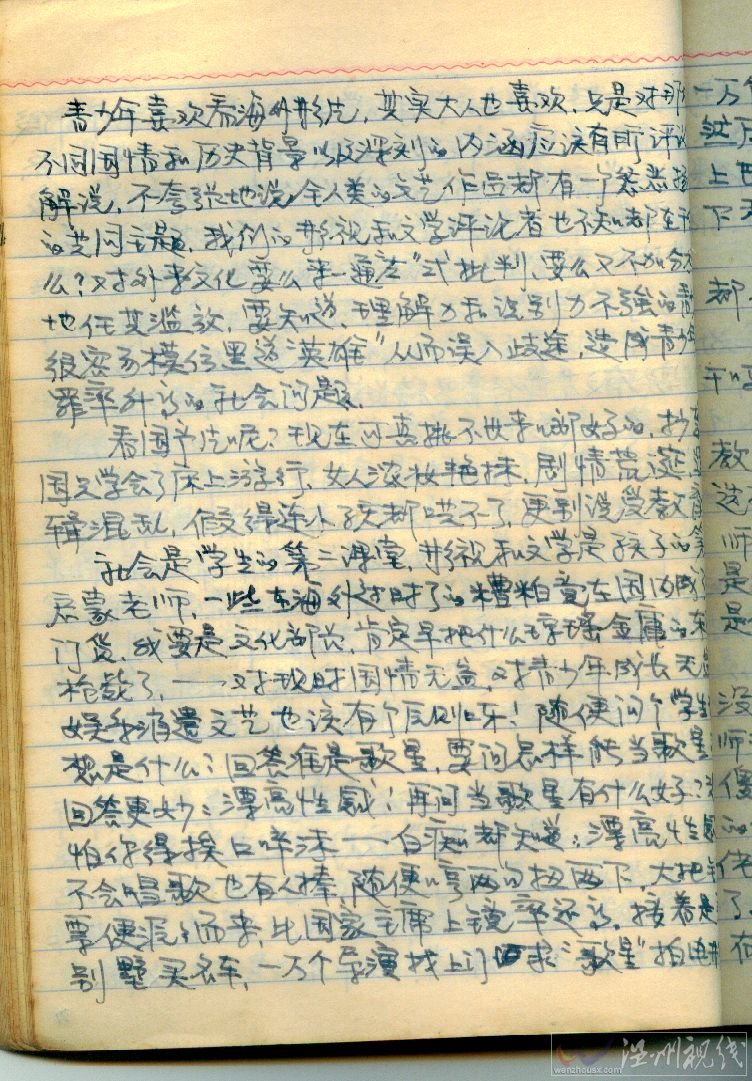 青少年喜欢看海外影片，其实大人也喜欢，只是对那
不同国情和历史背景以及深刻的内涵应该有所评论
解说，不夸张地说全人类的文艺作品都有一个惩恶
的共同主题，我们的影视和文学评论者也不知都在
么？对外来文化要么来一通"左"式批判，要么又不加分
地任其滥放，要知道，理解力和识别力不强的青
很容易模仿黑道"英雄"从而误入歧途，造成青少年
罪率升高的社会问题。
看国产片呢？现在可真挑不出来哪部好的，抄
国又学会了床上游行，女人浓妆艳抹，剧情荒诞
辑混乱，假得连小孩都哄不了，更别说受教
社会是学生的第二课堂，影视和文学是孩子的第
启蒙老师，一些在海外过时了的糟粕竟在国内成了
门货，我要是文化部长，肯定早把什么琼瑶金庸的东
枪毙了，——对现时国情无益，对青少年成长无
娱乐消遣文艺也该有个原则归宗！随便问个学生
想是什么？回答准是歌星，要问怎样能当歌星
回答更妙：漂亮性感！再问当歌星有什么好？
怕你得挨口啐沫——白痴都知道：漂亮性感
不会唱歌也有人捧，随便哼两句扭两下，大把
票便滚滚而来，比国家主席上镜率还高，接着是
别墅买名车，一万个导演找上门求"歌星"拍电影
一万
然
上
下
都
教
选
师
是
是
没
师
傻
的
了
温州视线
wenzhousx.com